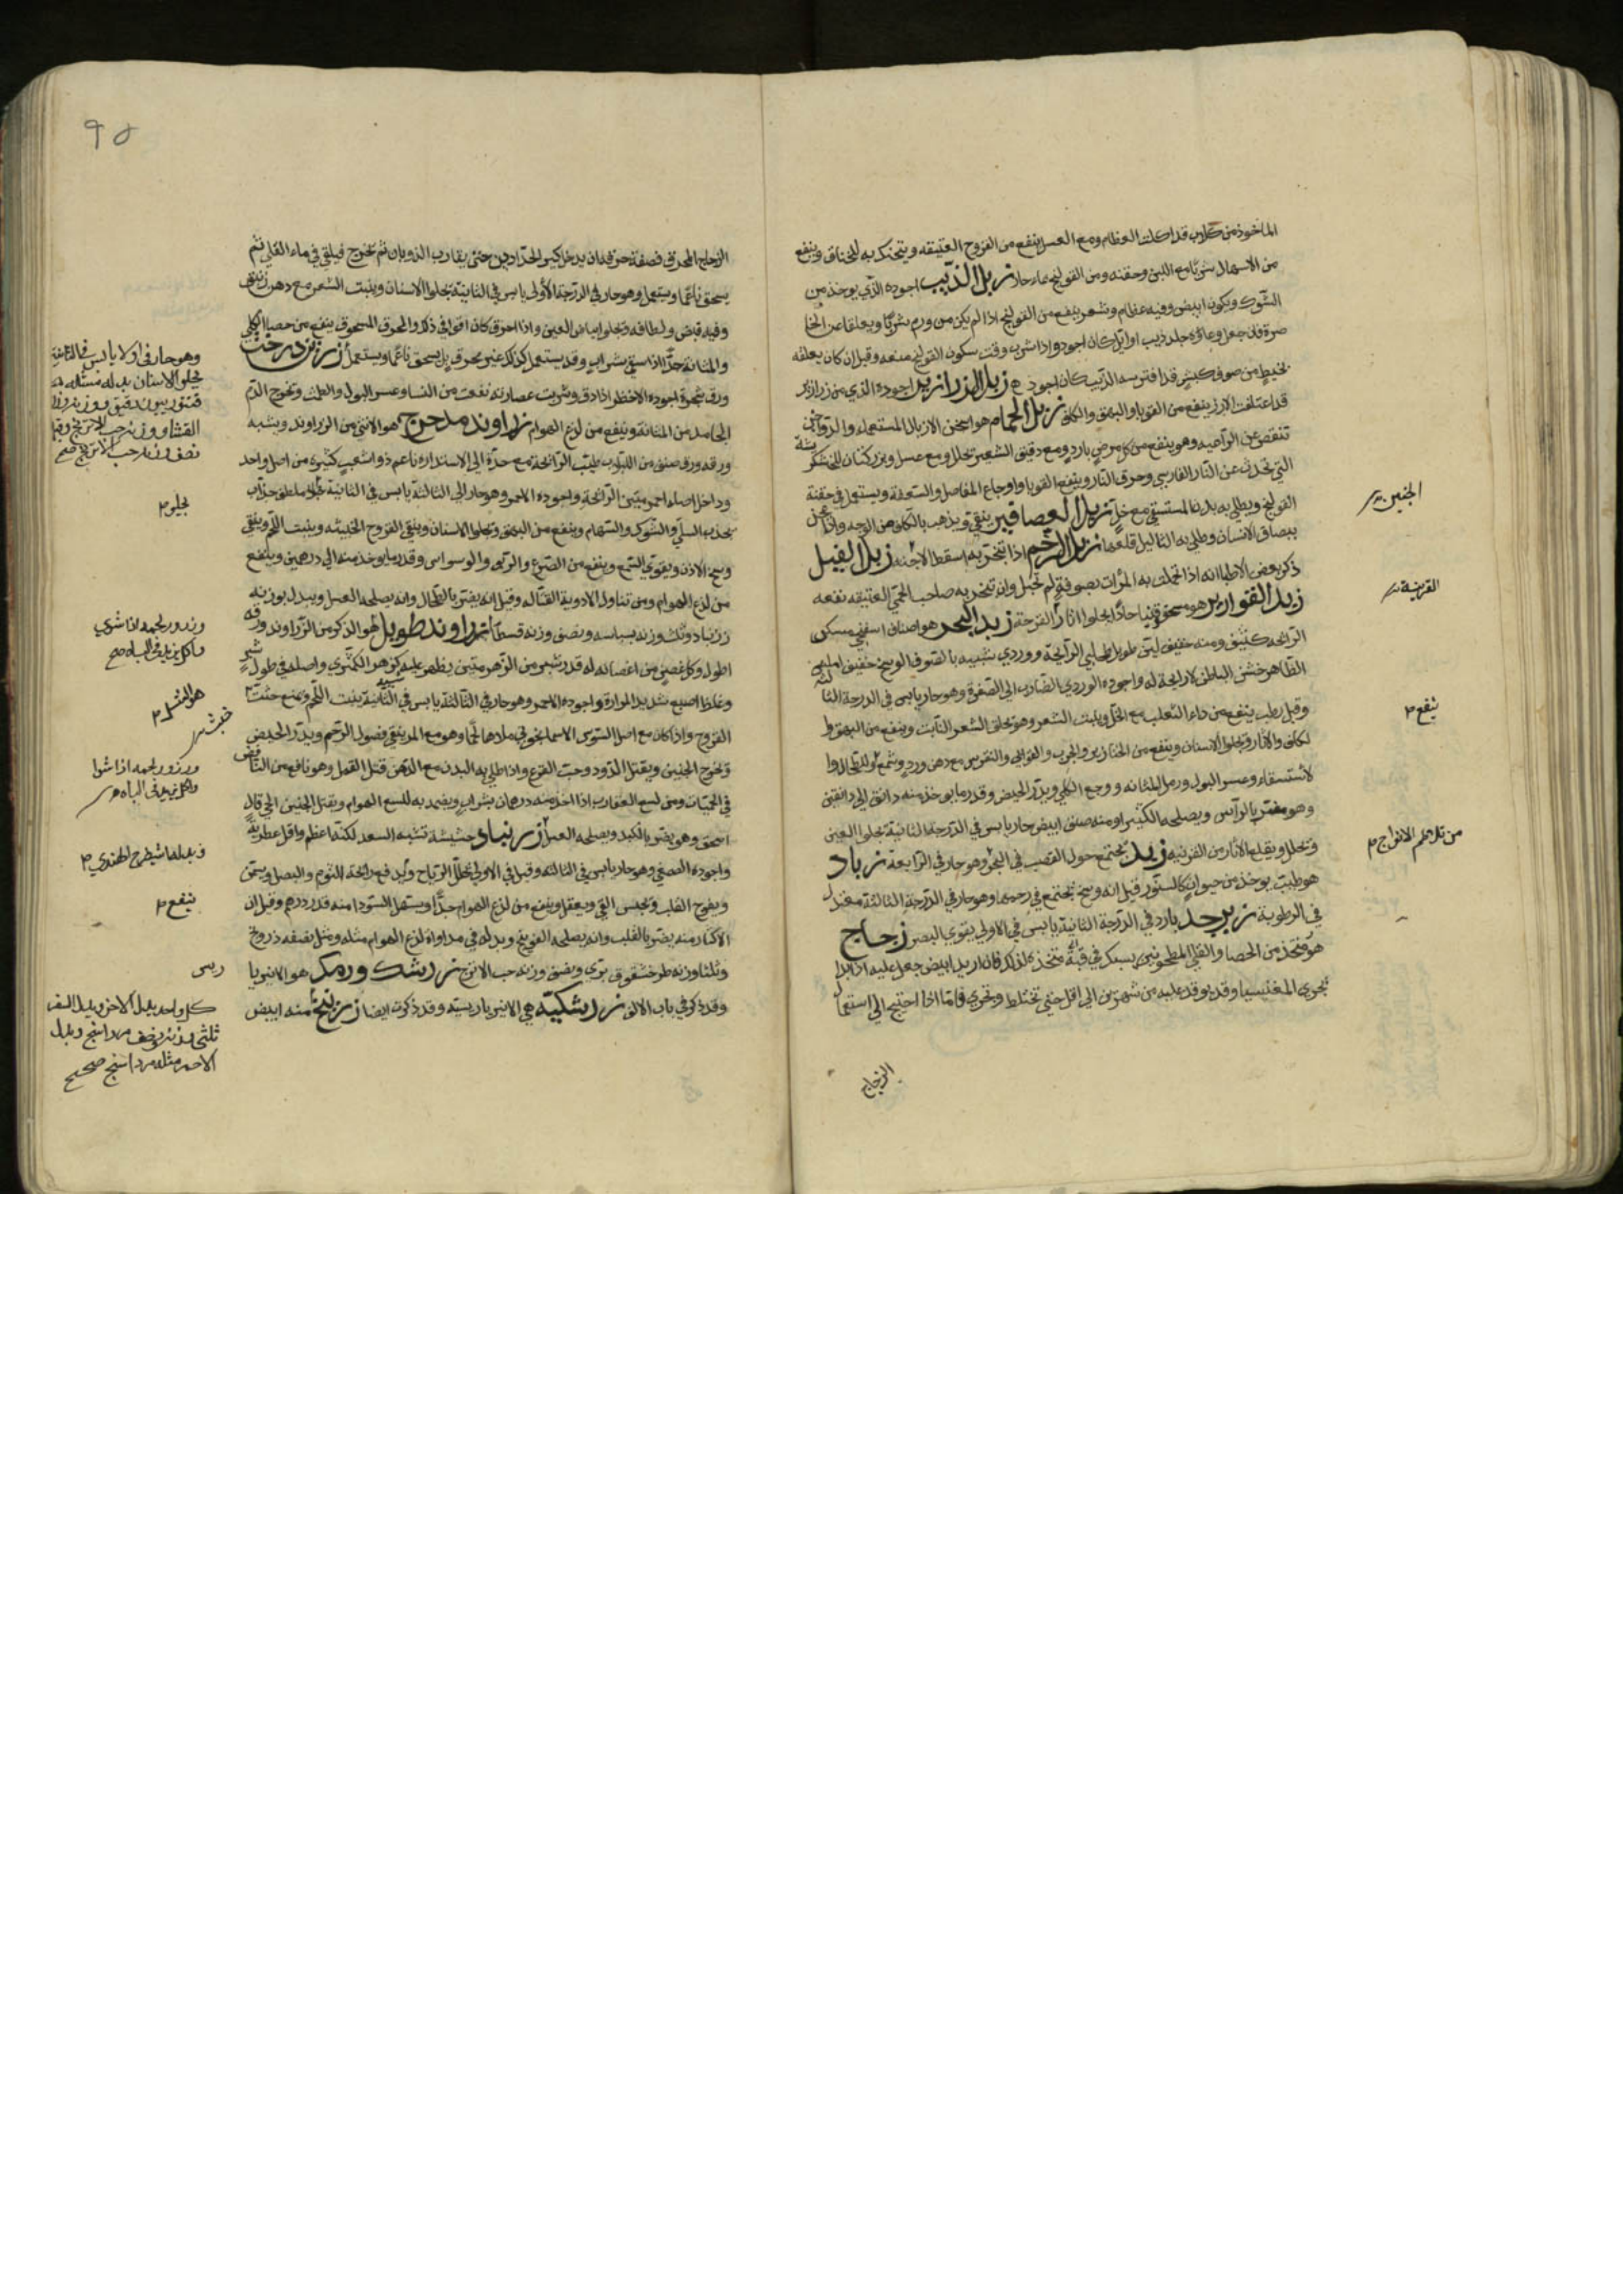 الماخوذ من كلاب قد اكلت العظام ومع العسل ينفع من القروح العتيقه ويتحنك به للخناق وينفع
من الاسهال شربا مع اللبن وحقنه ومن القولنج بماء حار زبل الذيب اجوده الذي يوخذ من
الشوك ويكون ابيض وفيه عظام وشعر ينفع من القولنج اذا لم يكن من ورم شربا ويعلقا عن الخا
صرة فان جعل وعاؤه جلد ذيب او ايل كان اجود واذا شرب وقت سكون القولنج منعه وقيل ان كان يعلقه
بخيط من صوف كبش قد افترسه الذيب كان اجود زبل الزرازير اجوده الذي من زرازير
قد اعتلفت الارز ينفع من القوبا والبهق والكلف زبل الحمام هو اسخن الازبال المستعمله والدواجن
تنقص عن الراعيه وهو ينفع من كل مرض بارد ومع دقيق الشعير تحلل ومع عسل وبزر كتان للخشكر يشة
التي تحدث عن النار الفارسي وحرق النار وينفع القوبا واوجاع المفاصل والسعفة ويستعمل في حقنة
القولنج ويطلى به بدن المستسقي مع خل زبل العصافير ينقي ويذهب بالكلف من الوجه واذا عجن
ببصاق الانسان وطلي به الثاليل قلعها زبل الرخم اذا تبخر به اسقط الاجنه زبل الفيل
ذكر بعض الاطبا انه اذا تحملت به المراة بصوفة لم تحبل وان تبخر به صاحب الحمى العتيقه نفعه
زبد القوارير هو مسحقونيا حاد يجلوا اثار القرحة زبد البحر هو اصناف اسفنجي مسكر
الرائحه كثيف ومنه خفيف لين طويل طحلبي الرائحة ووردي شبيه بالصوف الوسخ خفيف املس
الظاهر خشن الباطن لا رائحة له واجوده الوردي الضارب الى الصفرة وهو حار يابس في الدرجة الثا لثه
وقيل رطب ينفع من داء الثعلب مع الخل وينبت الشعر وهو يحلق الشعر النابت وينفع من البهق وا
لكلف والاثار ويجلوا الاسنان وينفع من الخنازير والجرب والقوابي والنقرس مع دهن ورد وشمع وللطحال وا
لاستسقاء وعسر البول ورمل المثانه ووجع الكلى ويدر الحيض وقدر ما يوخذ منه دانق الى دانقين
وهو مضر بالراس ويصلحه الكثيرا ومنه صنف ابيض حار يابس في الدرجة الثانية يجلوا العين
وتحلل ويقلع الاثار من القرنيه زبد يجتمع حول القصب في البحر وهو حار في الرابعة زباد
هو طيب يوخذ من حيوان كالسنور قيل انه وسخ يجتمع في رحمها وهو حار في الدرجة الثالثة معتدل
في الرطوبة زبرجد بارد في الدرجة الثانية يابس في الاولى يقوي البصر زجاج
هو متخذ من الحصا والقلي المطحونين يسبك في قبة متخذه لذلك فان اريد ابيض جعل عليه اذا بدا
يجري المغنيسيا وقد يوقد عليه من شهرين الى اقل حتى تختلط ويجري واما اذا احتيج الى استعما ل
الزجاج
الجنين
القرنيه
ينفع
٩٥
الزجاج المحرق فصفة حرقه ان يدخل كير الحدادين حتى يقارب الذوبان ثم تخرج فيلقى في ماء القلي ثم
يسحق ناعما ويستعمل وهو حار في الدرجة الأولى يابس في الثانية يجلوا الاسنان وينبت الشعر مع دهن زنبق
وفيه قبض ولطافه ويجلوا بياض العين واذا احرق كان اقوا في ذلك والمحرق المسحوق ينفع من حصا الكلى
والمثانة جدا اذا سقي بشراب وقد يستعمل كذلك غير محروق بل يسحق ناعما ويستعمل زرزين درخت
ورق شجرة اجوده الاخضر اذا دق وشربت عصارته نفعت من النسا وعسر البول والطمث وتخرج الدم
الجامد من المثانة وينفع من لذع الهوام زراوند مدحرج هو الانثى من الزراوند ويشبه
ورقه ورق صنف من اللبلاب طيب الرائحة مع حدة الى الاستداره ناعم ذو شعب كثيره من اصل واحد
وداخل اصله احمر منتن الرائحة واجوده الاحمر وهو حار الى الثالثة يابس في الثانية جلاء ملطف جذاب
يجذب السلي والشوك والسهام وينفع من البهق ويجلوا الاسنان وينقي القروح الخبيثه وينبت اللحم وينقي
وسخ الاذن ويقوي السمع وينفع من الصرع والربو والوسواس وقدر ما يوخذ منه الى درهمين وينفع
من لذع الهوام ومن تناول الادوية القتاله وقيل انه يضر بالطحال وانه يصلحه العسل ويبدل بوزنه
زرنباد وثلث وزنه بسباسه ونصف وزنه قسط زراوند طويل هو الذكر من الزراوند ورقه
اطول وكل غصن من اغصانه له قدر شبر من الزهر منتن يظهر عليه كزهر الكمثري واصله في طول شبر
وغلظ اصبع شديد المرارة واجوده الاحمر وهو حار في الثالثة يابس في الثانية ينبت اللحم ويمنع خبث
القروح واذا كان مع اصل السوس الاسمانجوني ملاها لحما وهو مع المر ينقي فضول الرحم ويدر الحيض
وتخرج الجنين ويقتل الدود وحب القرع واذا طلي به البدن مع الدهن قتل القمل وهو نافع من النافض
في الحميات ومن لسع العقارب اذا اخذ منه درهمان بشراب ويضمد به للسع الهوام ويقتل الجنين الى قال
اسحق وهو يضر بالكبد ويصلحه العسل زرنباد حشيشة تشبه السعد لكنه اعظم واقل عطرية
واجوده الصيني وهو حار يابس في الثالثه وقيل في الاولى يحلل الرياح وتدفع رائحة الثوم والبصل ويسمن
ويفرح القلب ويحبس القي ويعقل وينفع من لدغ الهوام جدا ويستعمل السودا منه قدر درهم وقيل ان
الاكثار منه يضر بالقلب وانه يصلحه الفوينج وبدله في مداواة لذع الهوام مثله ومثل نصفه ذرونج
وثلثا وزنه طرخشقوق بري ونصف وزنه حب الاترج زرشك ورمك هو الانبربا
وقد ذكر في باب الالف زرشكيه هي الانبرباريسيه وقد ذكرت ايضا زرنيخ منه ابيض
وهو حار في الاولا يابس في الثانية
يجلوا الاسنان بدله مثله
القثا ووزنه حب الاترج وقيل
نصف وزنه حب الاترج صح
يجلو
وزنه ولحمه اذا شوي
واكل يزيد في الباه صح
هو المشمل
ولحمه اذا شوا
واكل يزيد في الباه
وبدله شيطرج الهندي
ينفع
كل واحد بدل الاخر
ثلثي وزنه ونصف مرداسنج وبدل
الاحمر مثله مرداسنج صحيح